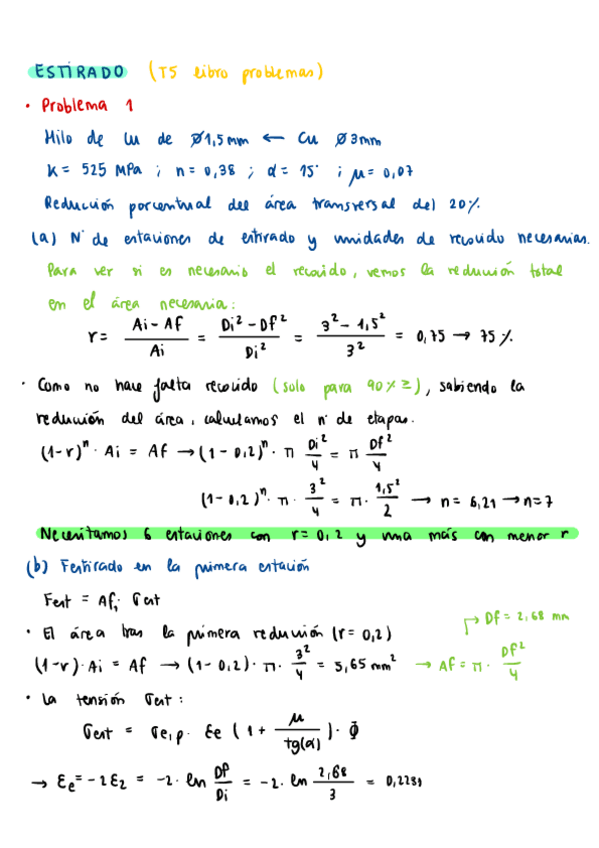 ESTIRADO (T5 libro problemas)
• Problema 1
Hilo de Cu de Ø1,5mm ← Cu Ø3mm
K = 525 MPa ; n = 0,38 ; α = 15° ; μ = 0,07
Reducción porcentual del área transversal del 20%.
(a) Nº de estaciones de estirado y unidades de recocido necesarias.
Para ver si es necesario el recocido, vemos la reducción total
en el área necesaria:
r = (Ai - Af)/Ai = (Di² - Df²)/Di² = (3² - 1,5²)/3² = 0,75 → 75 %.
• Como no hace falta recocido (solo para 90% ≥), sabiendo la
reducción del área, calculamos el nº de etapas.
(1-r)ⁿ · Ai = Af → (1 - 0,2)ⁿ · π Di²/4 = π Df²/4
(1 - 0,2)ⁿ · π · 3²/4 = π · 1,5²/2 → n = 6,21 → n = 7
Necesitamos 6 estaciones con r = 0,2 y una más con menor r
(b) Festirado en la primera estación
Fest = Af₁ · σest
• El área tras la primera reducción (r = 0,2)
↱ Df = 2,68 mm
(1-r) · Ai = Af → (1 - 0,2) · π · 3²/4 = 5,65 mm² → Af = π · Df²/4
• La tensión σest :
σest = σe,p · εe (1 + μ/tg(α)) · Φ
→ εe = -2ε2 = -2 · ln Df/Di = -2 · ln 2,68/3 = 0,2239